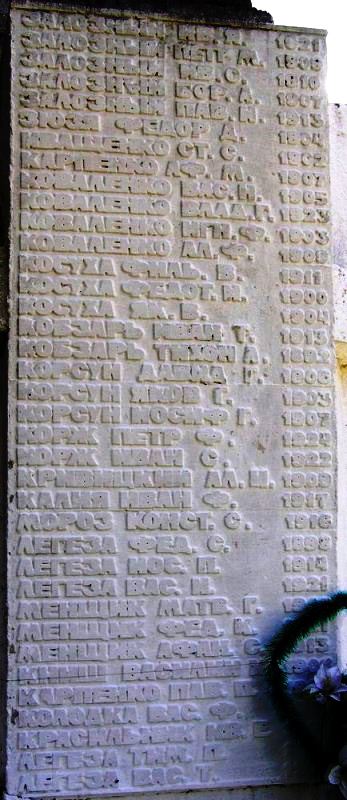 ЗАЛОЗНЫЙ ИВ. И. 1921
ЗАЛОЗНЫЙ ПЕТР М. 1909
ЗАЛОЗНЫЙ ИВ. С. 1910
ЗАЛОЗНЫЙ БОР. А. 1907
ЗАЛОЗНЫЙ ПАВ. И. 1913
ЗЮЗЯ ФЕДОР А. 1904
ИВАЩЕНКО СТ. С. 1902
КАРПЕНКО АФ. М. 1907
КОВАЛЕНКО ВАС. Н. 1905
КОВАЛЕНКО ВЛАД. Г. 1923
КОВАЛЕНКО ИГН. Ф. 1903
КОВАЛЕНКО АЛ. Ф.
КОСУХА ФИЛЬ. В. 1911
КОСУХА ФЕДОТ. И. 1900
КОСУХА ЯК. В. 1904
КОБЗАРЬ ИВАН Т. 1913
КОБЗАРЬ ТИХОН А.
КОРСУН 1906
КОРСУН ЯКОВ Г. 1903
КОРСУН ИОСИФ Г. 1907
КОРЖ ПЕТР Ф. 1924
КОРЖ ИВАН С. 1922
КРИВИЦКИЙ АЛ. И. 1909
КАЛНЯ ИВАН Ф. 1917
МОРОЗ КОНСТ. С. 1916
ЛЕГЕЗА ФЕД. С. 1898
ЛЕГЕЗА ИОС. П. 1914
ЛЕГЕЗА ВАС. И. 1921
МЕНЩИК МАТВ. Г.
МЕНЩИК ФЕД. К.
МЕНЩИК АФАН. С. 1913
КНИШ ВАСИЛИЙ
КАРПЕНКО ПАВ.
КОЛОДКА ВАС. Ф.
КРАСИЛЬНИК ИВ. Е
ЛЕГЕЗА ТИМ. П.
ЛЕГЕЗА ВАС. Т.